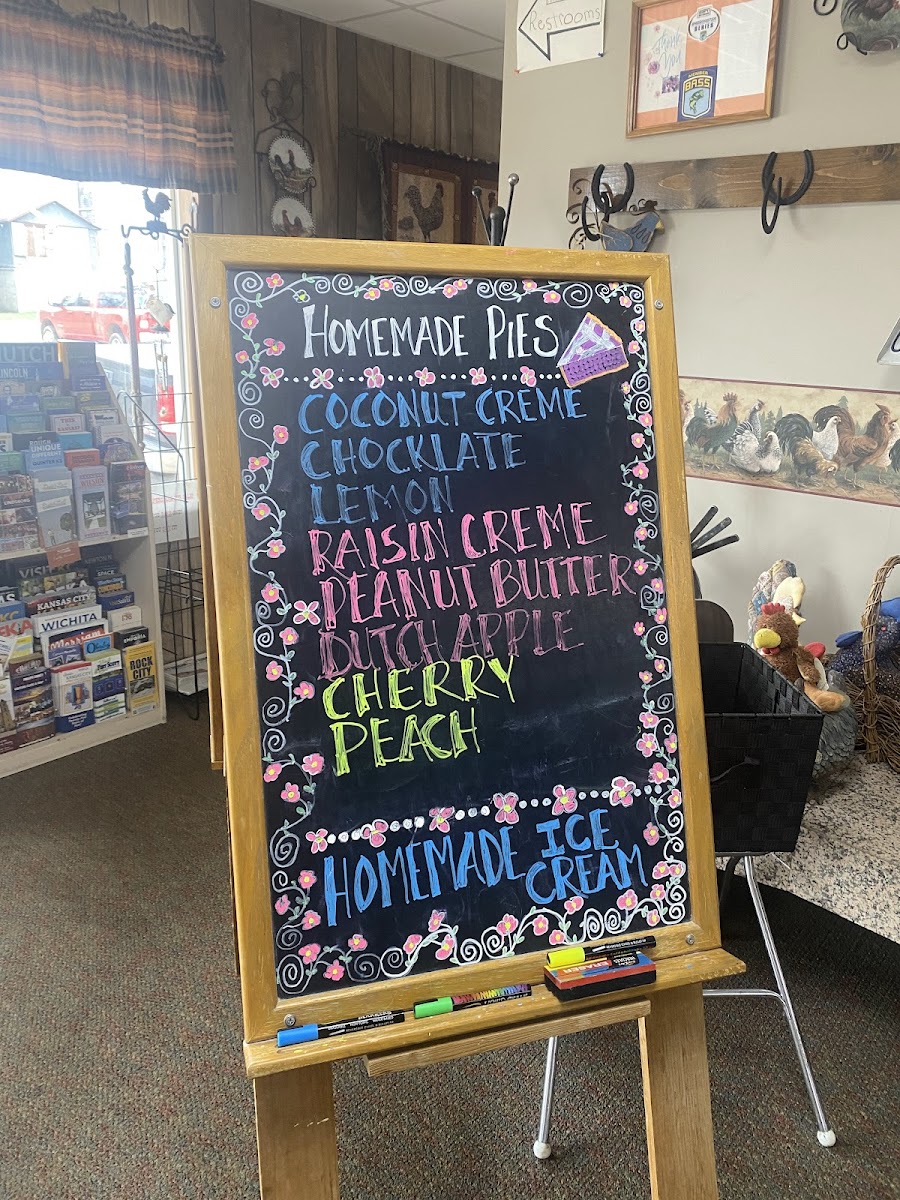 Restrooms
BASS
HOMEMADE PIES
COCONUT CREME
CHOCKLATE
LEMON
RAISIN CREME
PEANUT BUTTER
DUTCH APPLE
CHERRY
PEACH
HOMEMADE ICE
CREAM
ERASER
HUTCH
LINCOLN
KANSAS CITY
WICHITA
ROCK
CITY